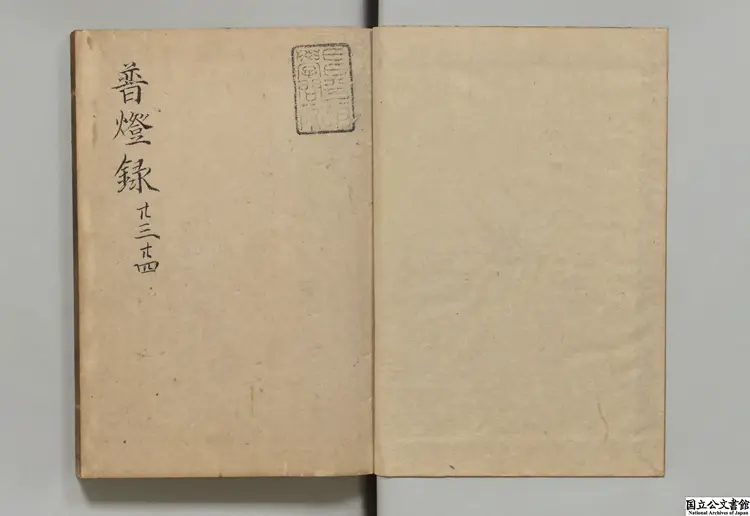 普燈録 廿三 廿四
国立公文書館
National Archives of Japan